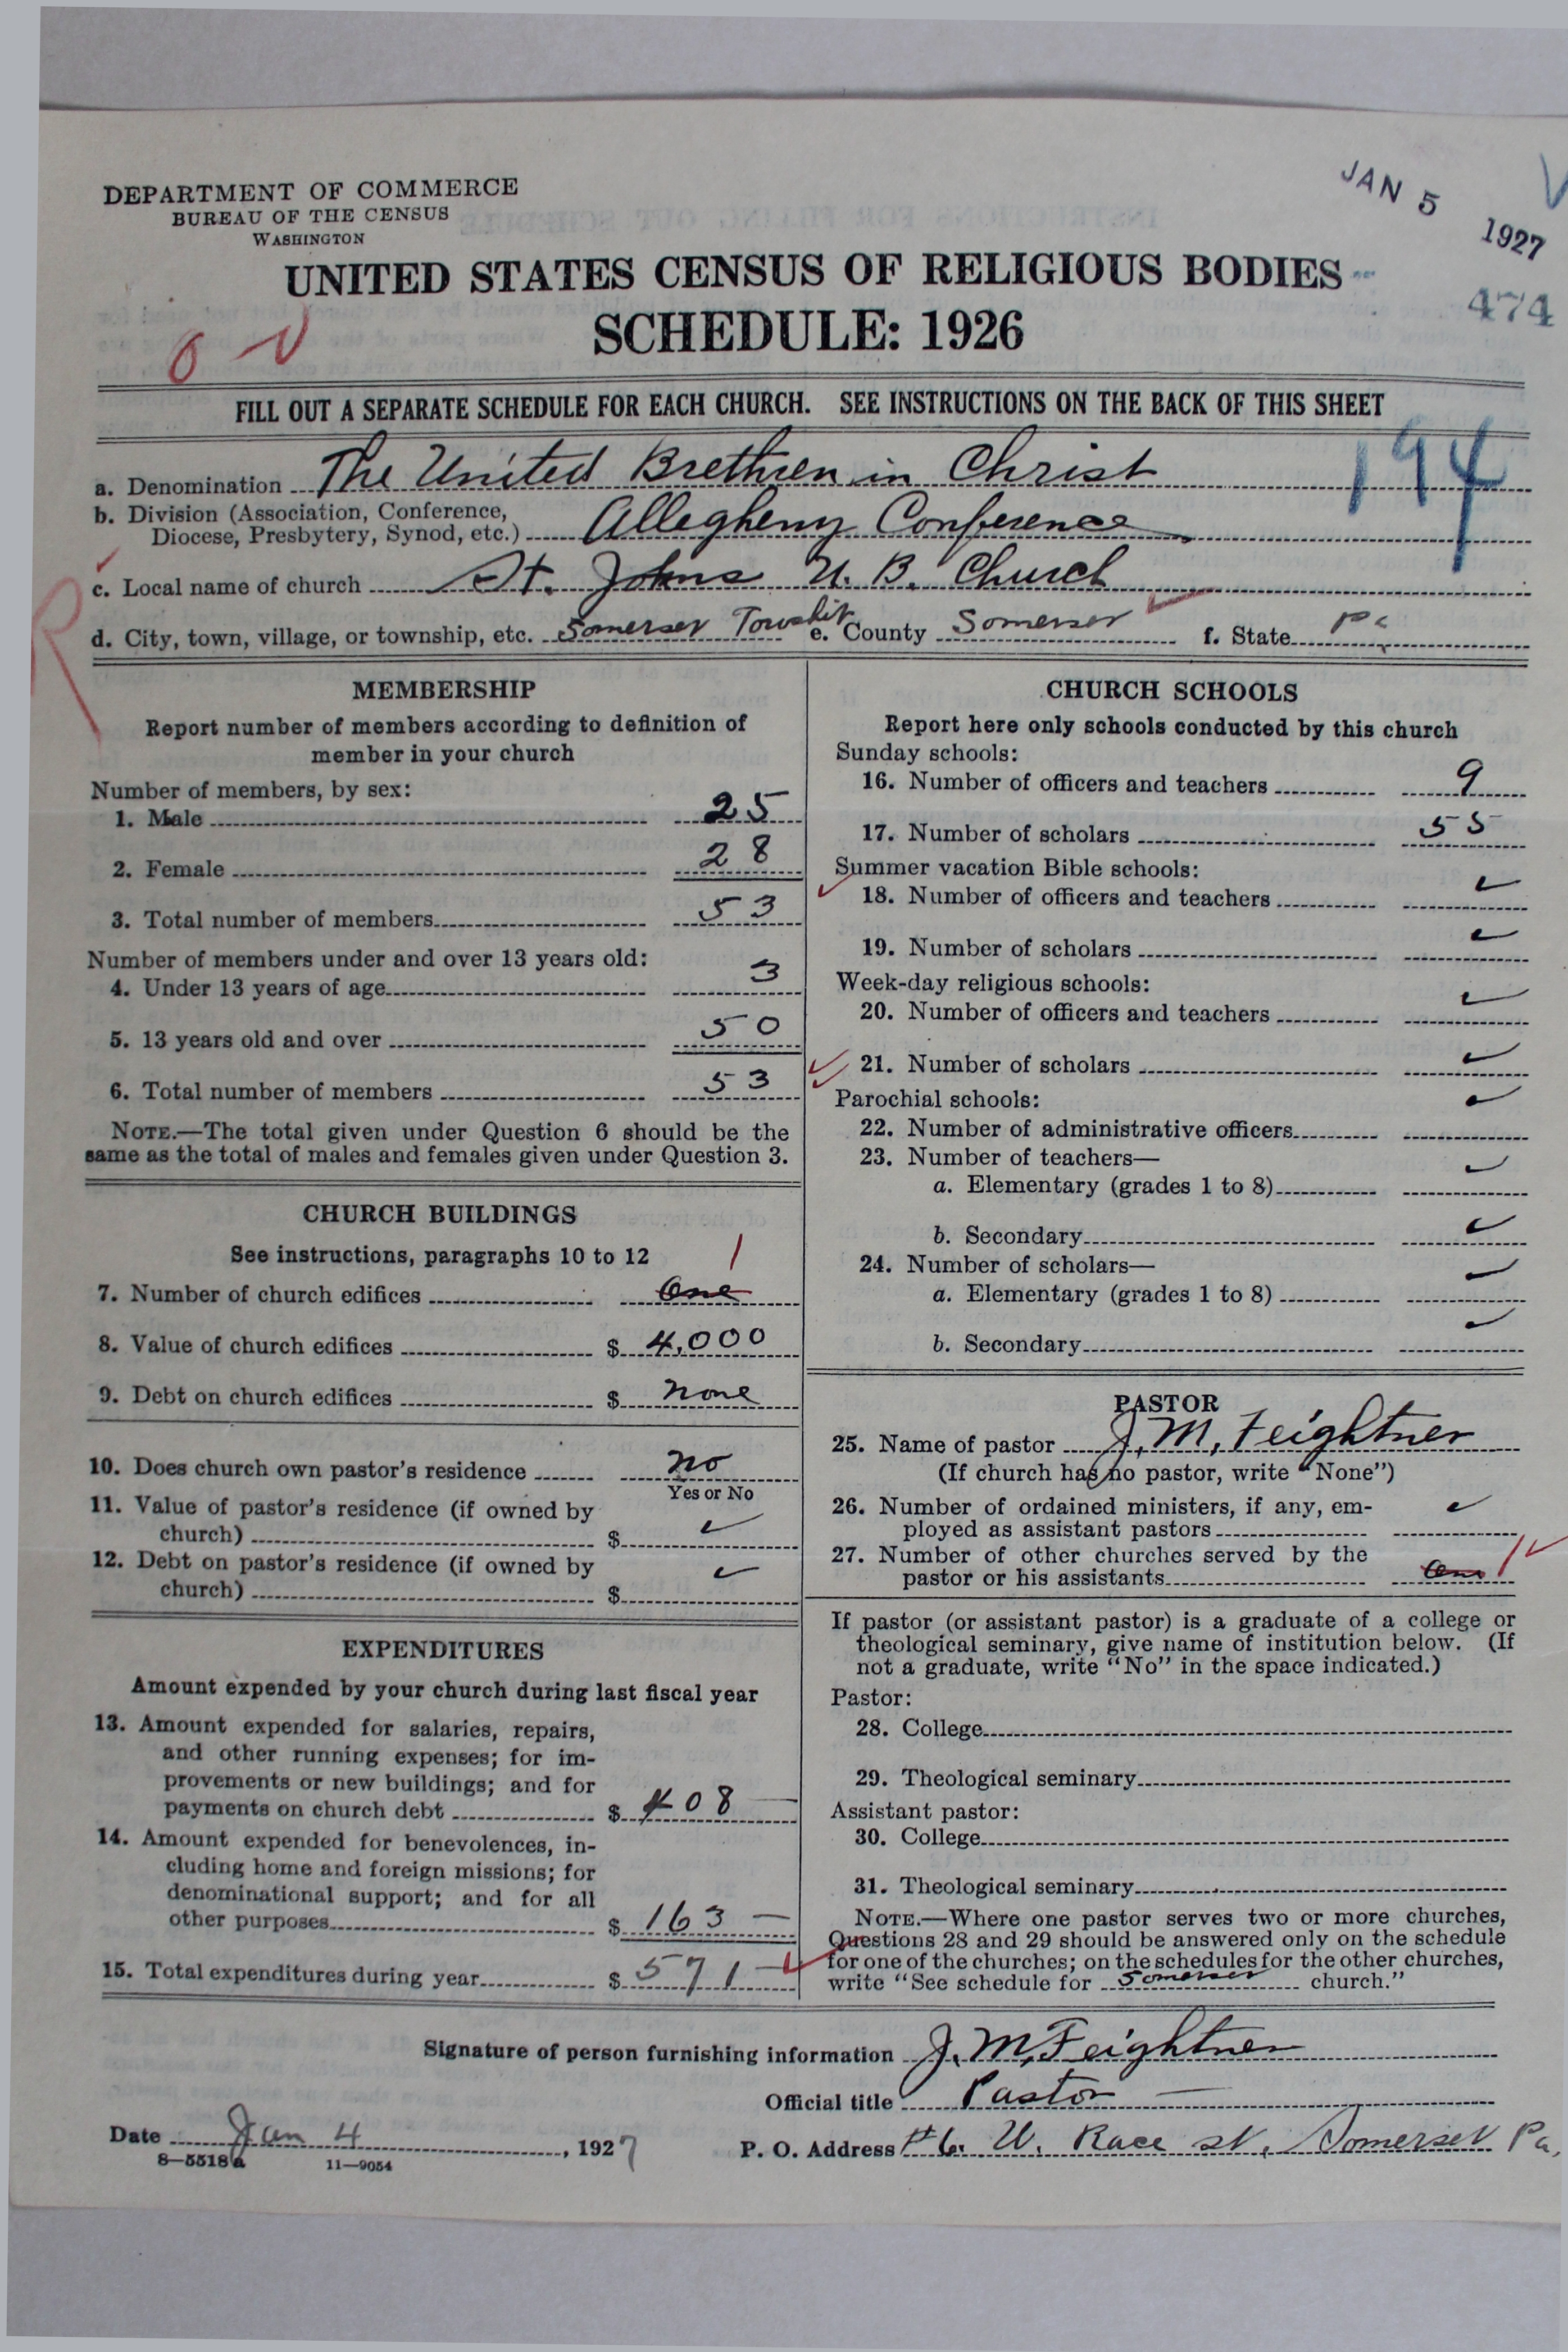 DEPARTMENT OF COMMERCE
BUREAU OF THE CENSUS
WASHINGTON
JAN 5 1927
474
UNITED STATES CENSUS OF RELIGIOUS BODIES
SCHEDULE: 1926
FILL OUT A SEPARATE SCHEDULE FOR EACH CHURCH. SEE INSTRUCTIONS ON THE BACK OF THIS SHEET
194
a. Denomination The United Brethren in Christ
b. Division (Association, Conference,
Diocese, Presbytery, Synod, etc.) Allegheny Conference
c. Local name of church St. Johns U. B. Church
d. City, town, village, or township, etc. Somerset Township e. County Somerset f. State Pa
R
MEMBERSHIP
Report number of members according to definition of
member in your church
Number of members, by sex:
1. Male 25
2. Female 28
3. Total number of members 53
Number of members under and over 13 years old:
4. Under 13 years of age 3
5. 13 years old and over 50
6. Total number of members 53
NOTE.—The total given under Question 6 should be the
same as the total of males and females given under Question 3.
CHURCH BUILDINGS
See instructions, paragraphs 10 to 12
7. Number of church edifices One 1
8. Value of church edifices $ 4,000
9. Debt on church edifices $ none
10. Does church own pastor's residence no
Yes or No
11. Value of pastor's residence (if owned by
church) $ ✓
12. Debt on pastor's residence (if owned by
church) $ ✓
EXPENDITURES
Amount expended by your church during last fiscal year
13. Amount expended for salaries, repairs,
and other running expenses; for im-
provements or new buildings; and for
payments on church debt $ 408 —
14. Amount expended for benevolences, in-
cluding home and foreign missions; for
denominational support; and for all
other purposes $ 163 —
15. Total expenditures during year $ 571 —
CHURCH SCHOOLS
Report here only schools conducted by this church
Sunday schools:
16. Number of officers and teachers 9
17. Number of scholars 55
Summer vacation Bible schools:
18. Number of officers and teachers ✓
19. Number of scholars ✓
Week-day religious schools:
20. Number of officers and teachers ✓
21. Number of scholars ✓
Parochial schools:
22. Number of administrative officers ✓
23. Number of teachers—
a. Elementary (grades 1 to 8) ✓
b. Secondary ✓
24. Number of scholars—
a. Elementary (grades 1 to 8) ✓
b. Secondary ✓
PASTOR
25. Name of pastor J. M. Feightner
(If church has no pastor, write "None")
26. Number of ordained ministers, if any, em-
ployed as assistant pastors ✓
27. Number of other churches served by the
pastor or his assistants One 1 ✓
If pastor (or assistant pastor) is a graduate of a college or
theological seminary, give name of institution below. (If
not a graduate, write "No" in the space indicated.)
Pastor:
28. College
29. Theological seminary
Assistant pastor:
30. College
31. Theological seminary
NOTE.—Where one pastor serves two or more churches,
Questions 28 and 29 should be answered only on the schedule
for one of the churches; on the schedules for the other churches,
write "See schedule for Somerset church."
Signature of person furnishing information J. M. Feightner
Official title Pastor
Date Jan 4, 1927
P. O. Address #6. W. Race st, Somerset Pa,
8—5518a 11—9054